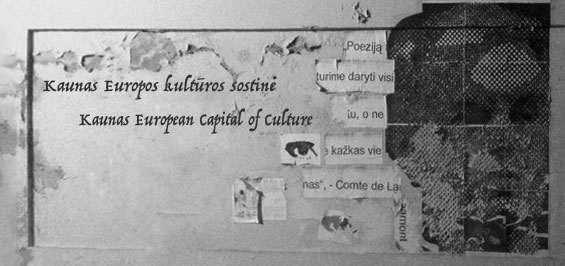 Kaunas Europos kultūros sostinė
Kaunas European Capital of Culture
„Poeziją
turime daryti visi
tu, o ne
kažkas vie
nas“, - Comte de La